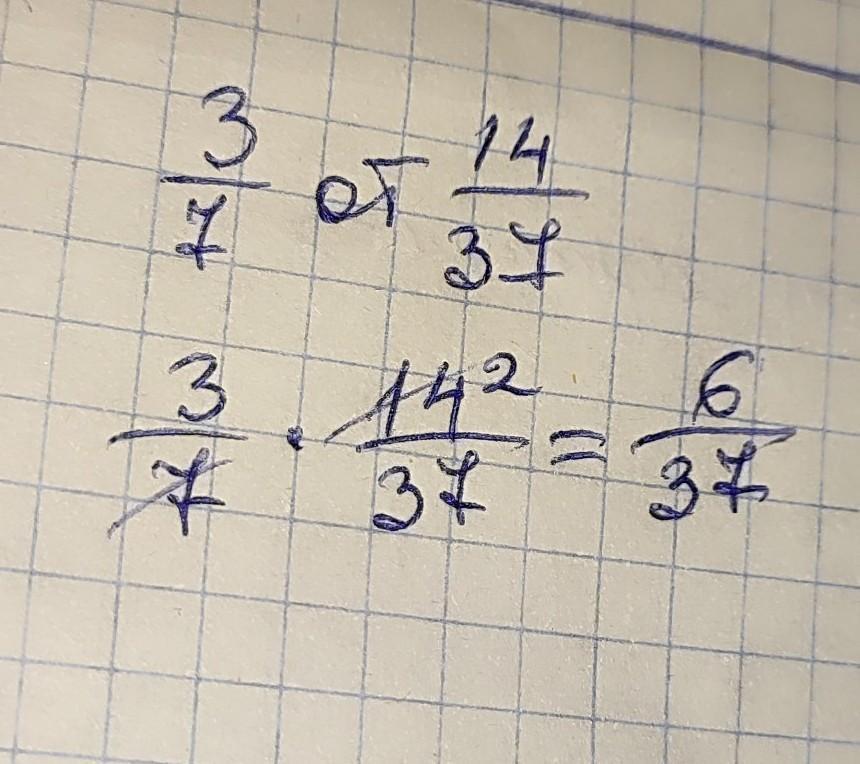 3/7 от 14/37
3/7 · 14² /37 = 6/37